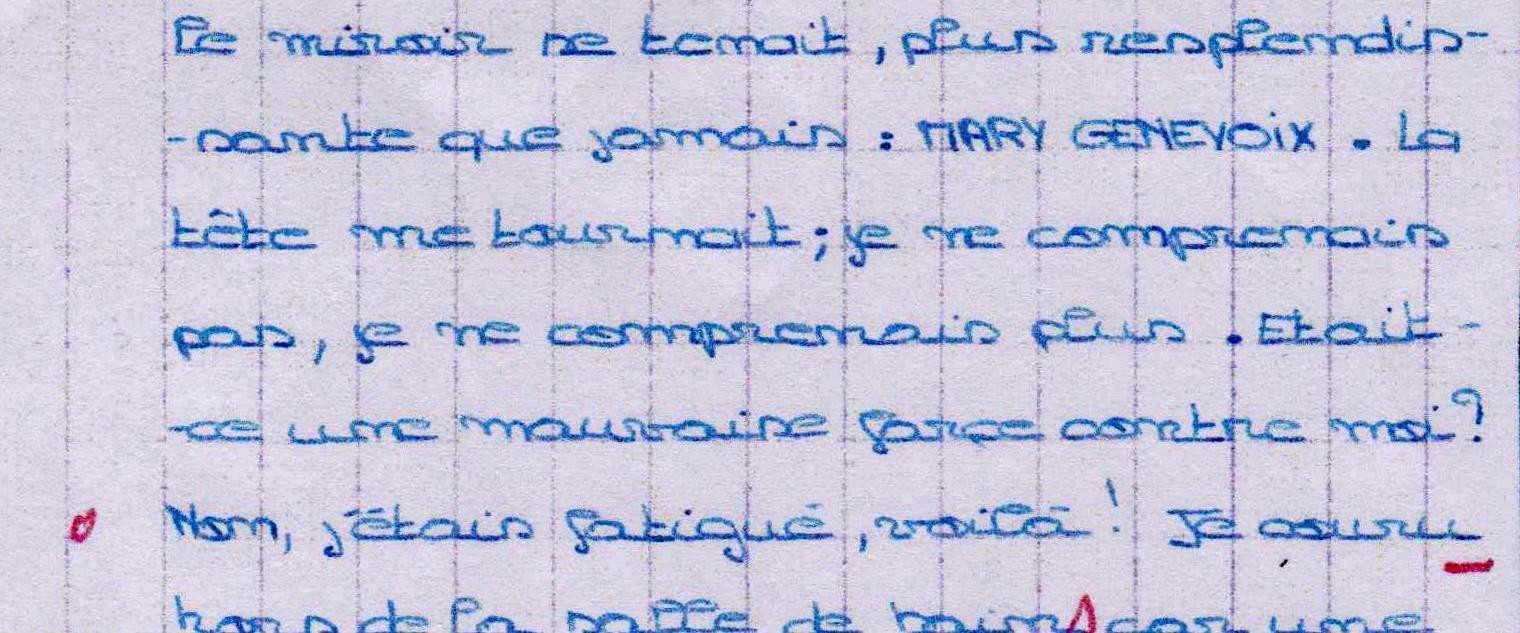 le miroir se tenait, plus resplendis-
-sante que jamais : MARY GENEVOIX. La
tête me tournait; je ne comprenais
pas, je ne comprenais plus. Etait-
-ce une mauvaise farce contre moi?
Non, j'étais fatigué, voilà! Je
hors de la salle de bains car une